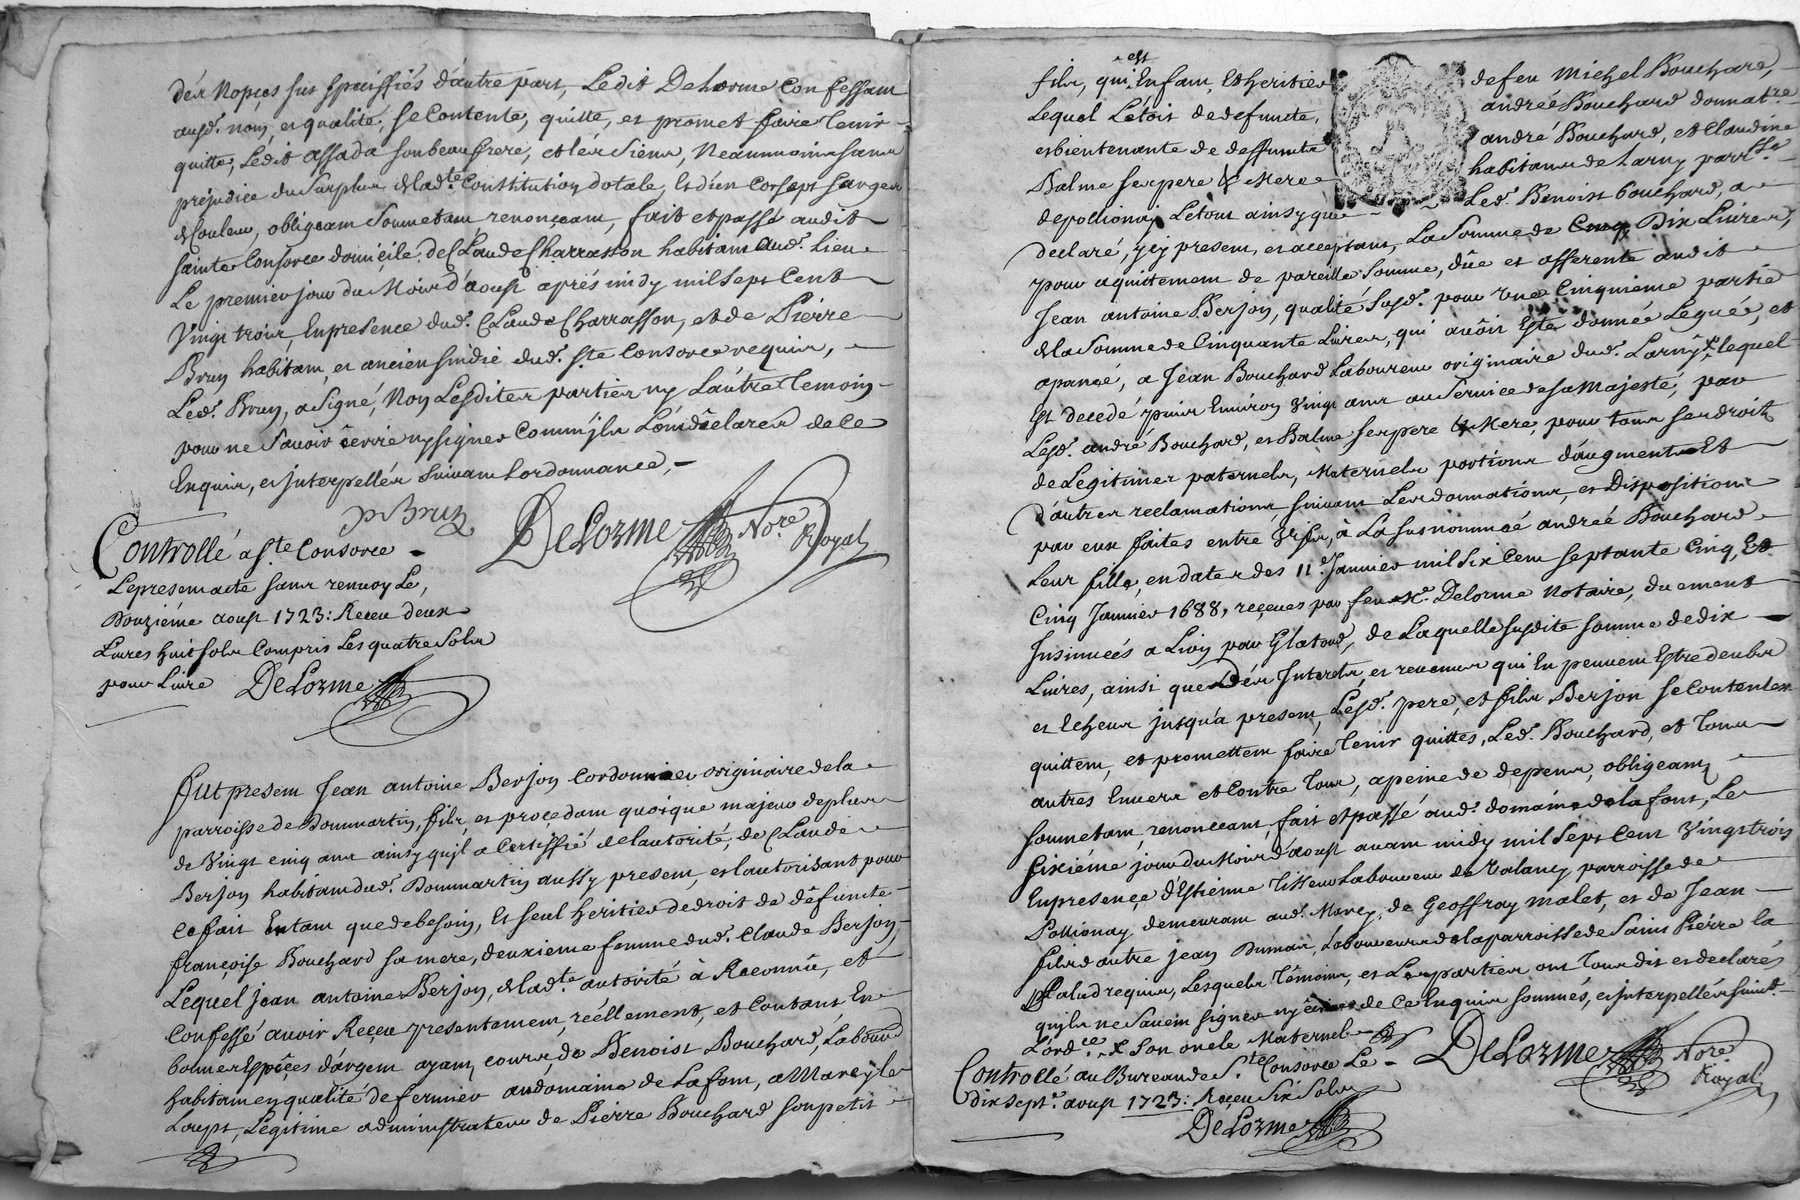 des Nopces sus speciffiés d'autre part, Ledit Delorme Confessam
ausd. nom, et qualité, se Contente, quitte, et promet faire tenir
quitte, Ledit assada son beau frere, et les Siens, Neanmoins sans
préjudice du Surplus de lad.te Constitution dotale, et d'un Corseps sarges
de Couleur, obligeam Soumetam renonçeam, fait et passé audit
Sainte Consorce domicile de Claude Charrasson habitam aud. lieu
Le premier jour du Mois d'aoust aprés midy mil sept Cent
Vingt trois, En presence dud. Claude Charrasson, et de Pierre
Brun habitam, et ancien sindic dud. S.te Consorce requis,
Led. Brun, a signé, Non Lesdites parties ny L'autre temoin
pour ne Scavoir écrire ny signer Comm'jls L'ont déclarer de ce
Enquis, et jnterpellés suivam Lordonnance,
P Brun
DeLorme Nore. Royal
Controllé a S.te Consorce
Le present acte sans renvoy Le,
Douziéme aoust 1723: Receu deux
Livres huit sols Compris Les quatre Sols
pour Livre DeLorme
Fut presem Jean antoine Berjon Cordonnier originaire de la
parroisse de Dommartin, fils, et procedam quoique majeur de plus
de Vingt cinq ans ainsy qu'jl a Certiffié de l'autorité, de Claude
Berjon habitam dud. Dommartin aussy presem, et l'autorisant pour
ce fait En tam que de besoin, Et seul heritier de droit de défuncte
françoise Bouchard sa mere, deuxieme femme dud. Claude Berjon,
Lequel jean antoine Berjon, de lad.te autorité à Reconnû, et
Confessé avoir Reçeu presentement, réellement, et Contant En
bonnes Espêces d'argem ayam cours, de Benoist Bouchard, Laboureur
habitam en qualité de fermier au domaine de Lafom, a Marcy le
Loup, Legitime administrateur de Pierre Bouchard son petit
fils, qui est Enfam, Et heritier de feu Michel Bouchard,
Lequel L'étoit de defuncte, andreé Bouchard donnat.re
et bientenante de deffunts andré Bouchard, et Claudine
Balme ses pere & Mere habitans de Larny parr.sse
de pollionay Le tout ainsy que Led. Benoist bouchard, a
declaré, jcy presem, et acceptam, La Somme de Cinq Dix Livres,
pour aquittement de pareille Somme, dûe et afferente audit
Jean antoine Berjon, qualité Susd. pour Une Cinquiéme partie
de la Somme de Cinquante Livres, qui avoit Esté donnée Leguée, et
apangé, a Jean Bouchard Laboureur originaire dud. Larny, x lequel
Est decedé puis Environ Vingt ans au Service de sa Majesté, par
Lesd. andré Bouchard, et Balme ses pere & Mere, pour tous ses droits
de Legitimes paternels, Maternels portions d'augments Et
d'autres reclamations, suivant Les donnations, et Dispositions
par eux faites entre Vifs, à La susnommeé andreé Bouchard
Leur fille, en dates des 11.e Janvier mil six Cent septante Cinq, Et
Cinq Janvier 1688, reçeues par feu M.e Delorme Notaire, duement
Insinueés a Lion par Glatoud, de Laquelle susdite somme de dix
Livres, ainsi que Des Interets, et revenus qui En peuvem Estre deubs
et Echeus jusqu'a presem, Lesd. pere, et fils Berjon se Contentem
quittem, et promettem faire tenir quittes, Led. Bouchard, et tous
autres Envers et Contre tous, a peine de depens, obligeam
soumetam, renonceam, fait et passé aud. domaine de la font, Le
sixiéme jour du Mois d'aoust avam midy mil Sept Cent Vingt trois
En presençe d'Estienne Tisseur Laboureur de Valancy parroisse de
Pollionay demeuram aud. Marcy, de Geoffray malet, et de Jean
fils d'autre jean Dumas, Laboureurs de la parroisse de Saint Piérre la
Palud requis, Lesquels témoins, et Les parties ont tous dit et declarés
qu'jls ne Savem signer ny écrire de ce Enquis sommés, et jnterpellés suiv.t
L'ord.ce x Son oncle Maternel
Controllé au Bureau de S.te Consorce Le
dix sept.e aoust 1723: Reçeu Six Sols
DeLorme
DeLorme Nore. Royal